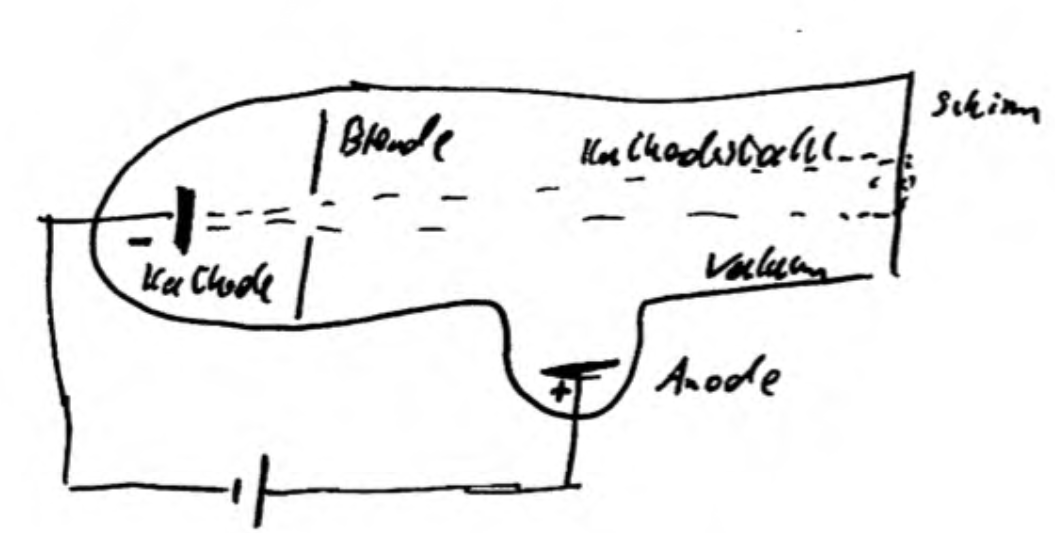 Schirm
Blende
Kathodestrahl
-
Kathode
Vakuum
+
Anode